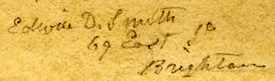 Edwin D. Smith
69 East St
Brighton